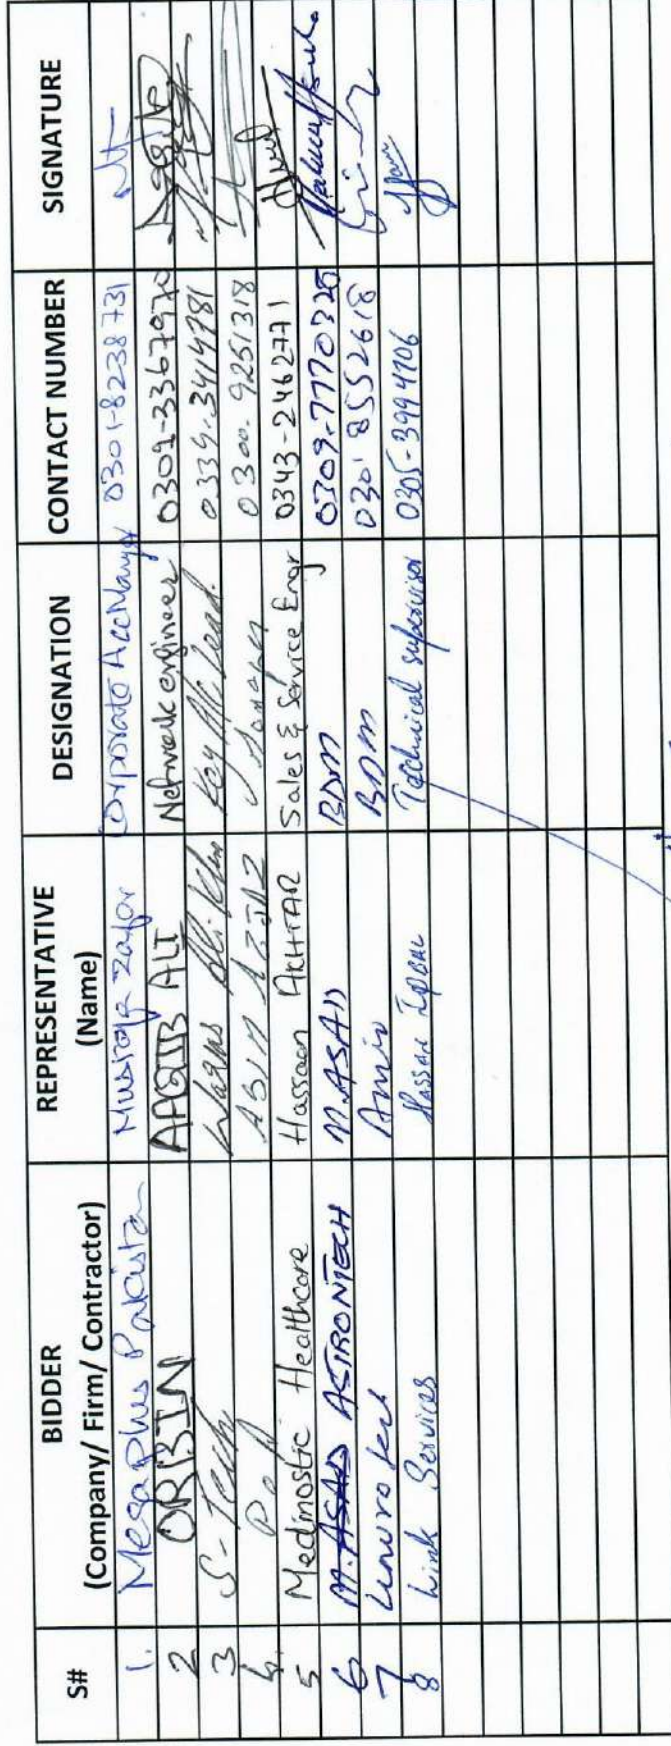 S# BIDDER (Company/ Firm/ Contractor) REPRESENTATIVE (Name) DESIGNATION CONTACT NUMBER SIGNATURE
1. Megaplus Pakistan Murtaza Zafar Corporate Acc Manager 0301-8238731
2 ORBIN AAQIB ALI Network engineer 0302-3367970
3 S-Tech Waqas Ali Khan Key A/c Lead. 0334-3414781
4. ASIM 0300-9251318
5 Medinostic Healthcare Hassaan AKHTAR Sales & Service Engr 0343-2462771
6 M.ASAD ASTRONTECH M.ASAD BDM 0309-7770326
7 Amir BDM 0301 8552618
8 Link Services Hassan Iqbal Technical supervisor 0305-3994706